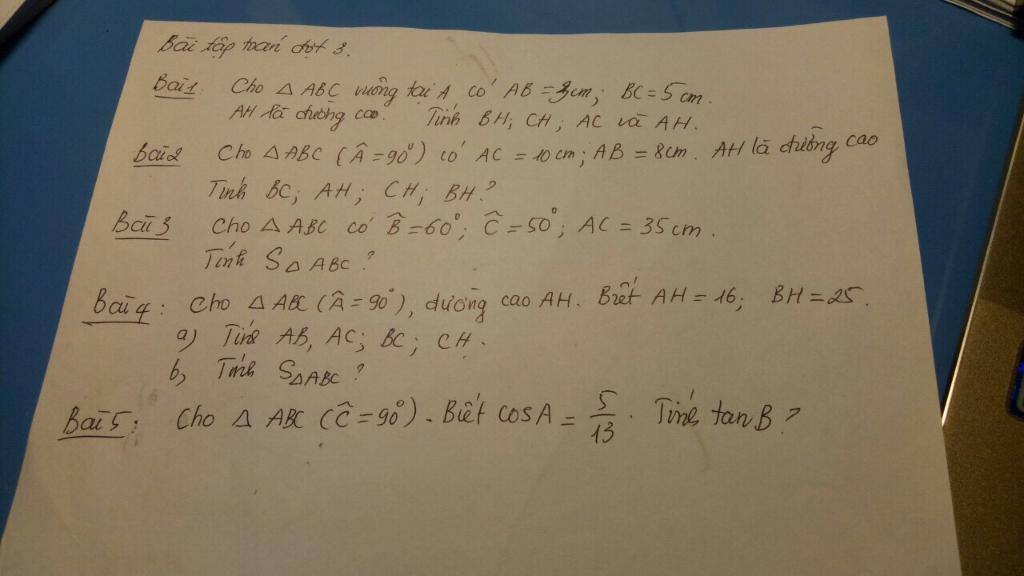 Bài tập toán đợt 3.
Bài 1: Cho △ ABC vuông tại A có AB = 3cm; BC = 5cm.
AH là đường cao. Tính BH; CH; AC và AH.
Bài 2 Cho △ABC (Â = 90°) có AC = 10cm; AB = 8cm. AH là đường cao
Tính BC; AH; CH; BH?
Bài 3 Cho △ ABC có B̂ = 60°; Ĉ = 50°; AC = 35cm.
Tính S△ABC?
Bài 4: Cho △ ABC (Â = 90°), đường cao AH. Biết AH = 16; BH = 25.
a) Tính AB, AC; BC; CH.
b, Tính S△ABC?
Bài 5: Cho △ ABC (Ĉ = 90°). Biết cos A = 5/13. Tính tan B?